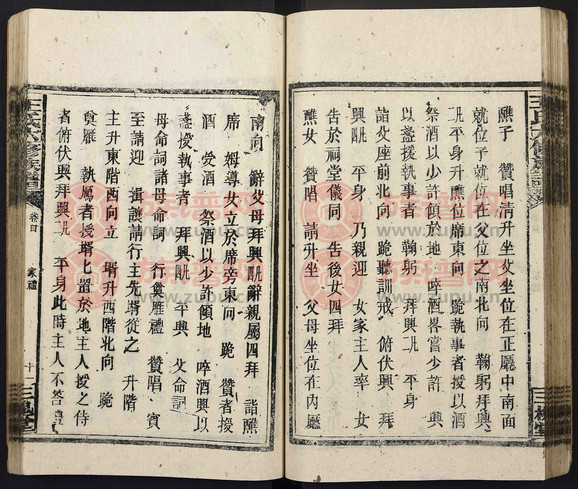 醮子 贊唱請升坐父坐位在正廳中南面
就位子就位在父位之南北向 鞠躬拜興
二 平身升醮位席東向 跪執事者授以酒
祭酒以少許傾於地 啐酒畧嘗少許 興
以盞授執事者 鞠躬 拜興二 平身
詣父座前北向 跪聽訓戒 俯伏興拜
興 平身 乃親迎 女家主人率 女
告於祠堂儀同 告後女四拜
醮女 贊唱 請升坐 父母坐位在內廳
南向 辭父母拜興 辭親屬四拜 詣醮
席 姆導女立於席旁東向 跪 贊者授
酒 受酒 祭酒以少許傾地 啐酒興以
盞授執事者 拜興 平興 父命詞
母命詞諸母命詞 行奠雁禮 贊唱 賓
至請迎 揖讓請行主先壻從之 升階
主升東階西向立 壻升西階北向 跪
奠雁 執雁者授壻 置於地主人授之侍
者俯伏興拜興 平身此時主人不答
王氏六修族譜
卷首
家禮
十
三槐堂
王氏六修族譜
三槐堂
族譜网
www.zupu.cn